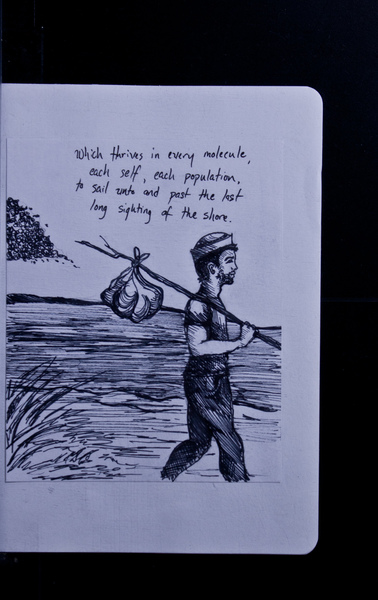 Which thrives in every molecule,
each self, each population,
to sail unto and past the last
long sighting of the shore.